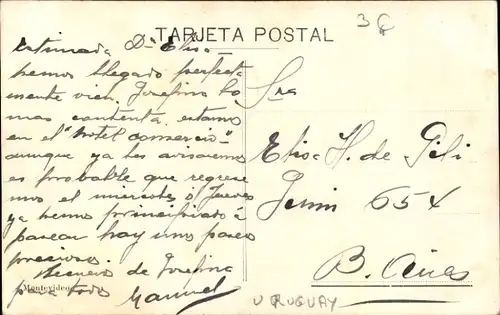 TARJETA POSTAL
3
Estimada Dª Elisa
hemos llegado perfecta
mente bien. Josefina lo
mas contenta. estamos
en el "hotel Comercio"
aunque ya les avisaremos
es probable que regrese
mos el miercoles ó Jueves
ya hemos principiado á
pasear hay unos paseos
preciosos.
Recuerdo de Josefina
para todos Manuel
Montevideo
Sra
Elisa H. de Pili
Junin 654
B. Aires
URUGUAY